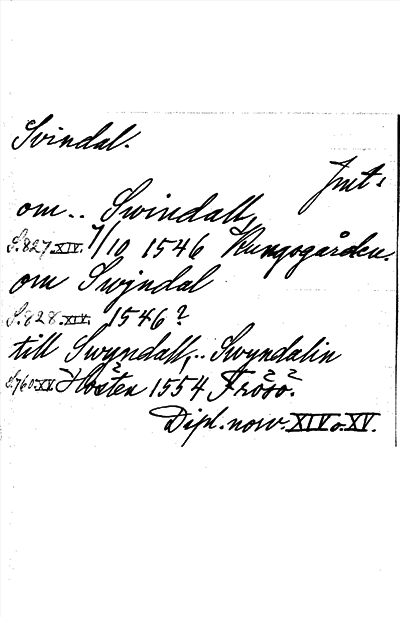 Svindal.
Jmt.
om.. Swindall,
S.827.XIV. 7/10 1546 Kungsgården.
om Swjndal
S.828.XIV. 1546?
till Swyndall,.. Swyndalin
S.760.XV. Hösten? 1554 Frösö?.
Dipl. norv. XIV o. XV.